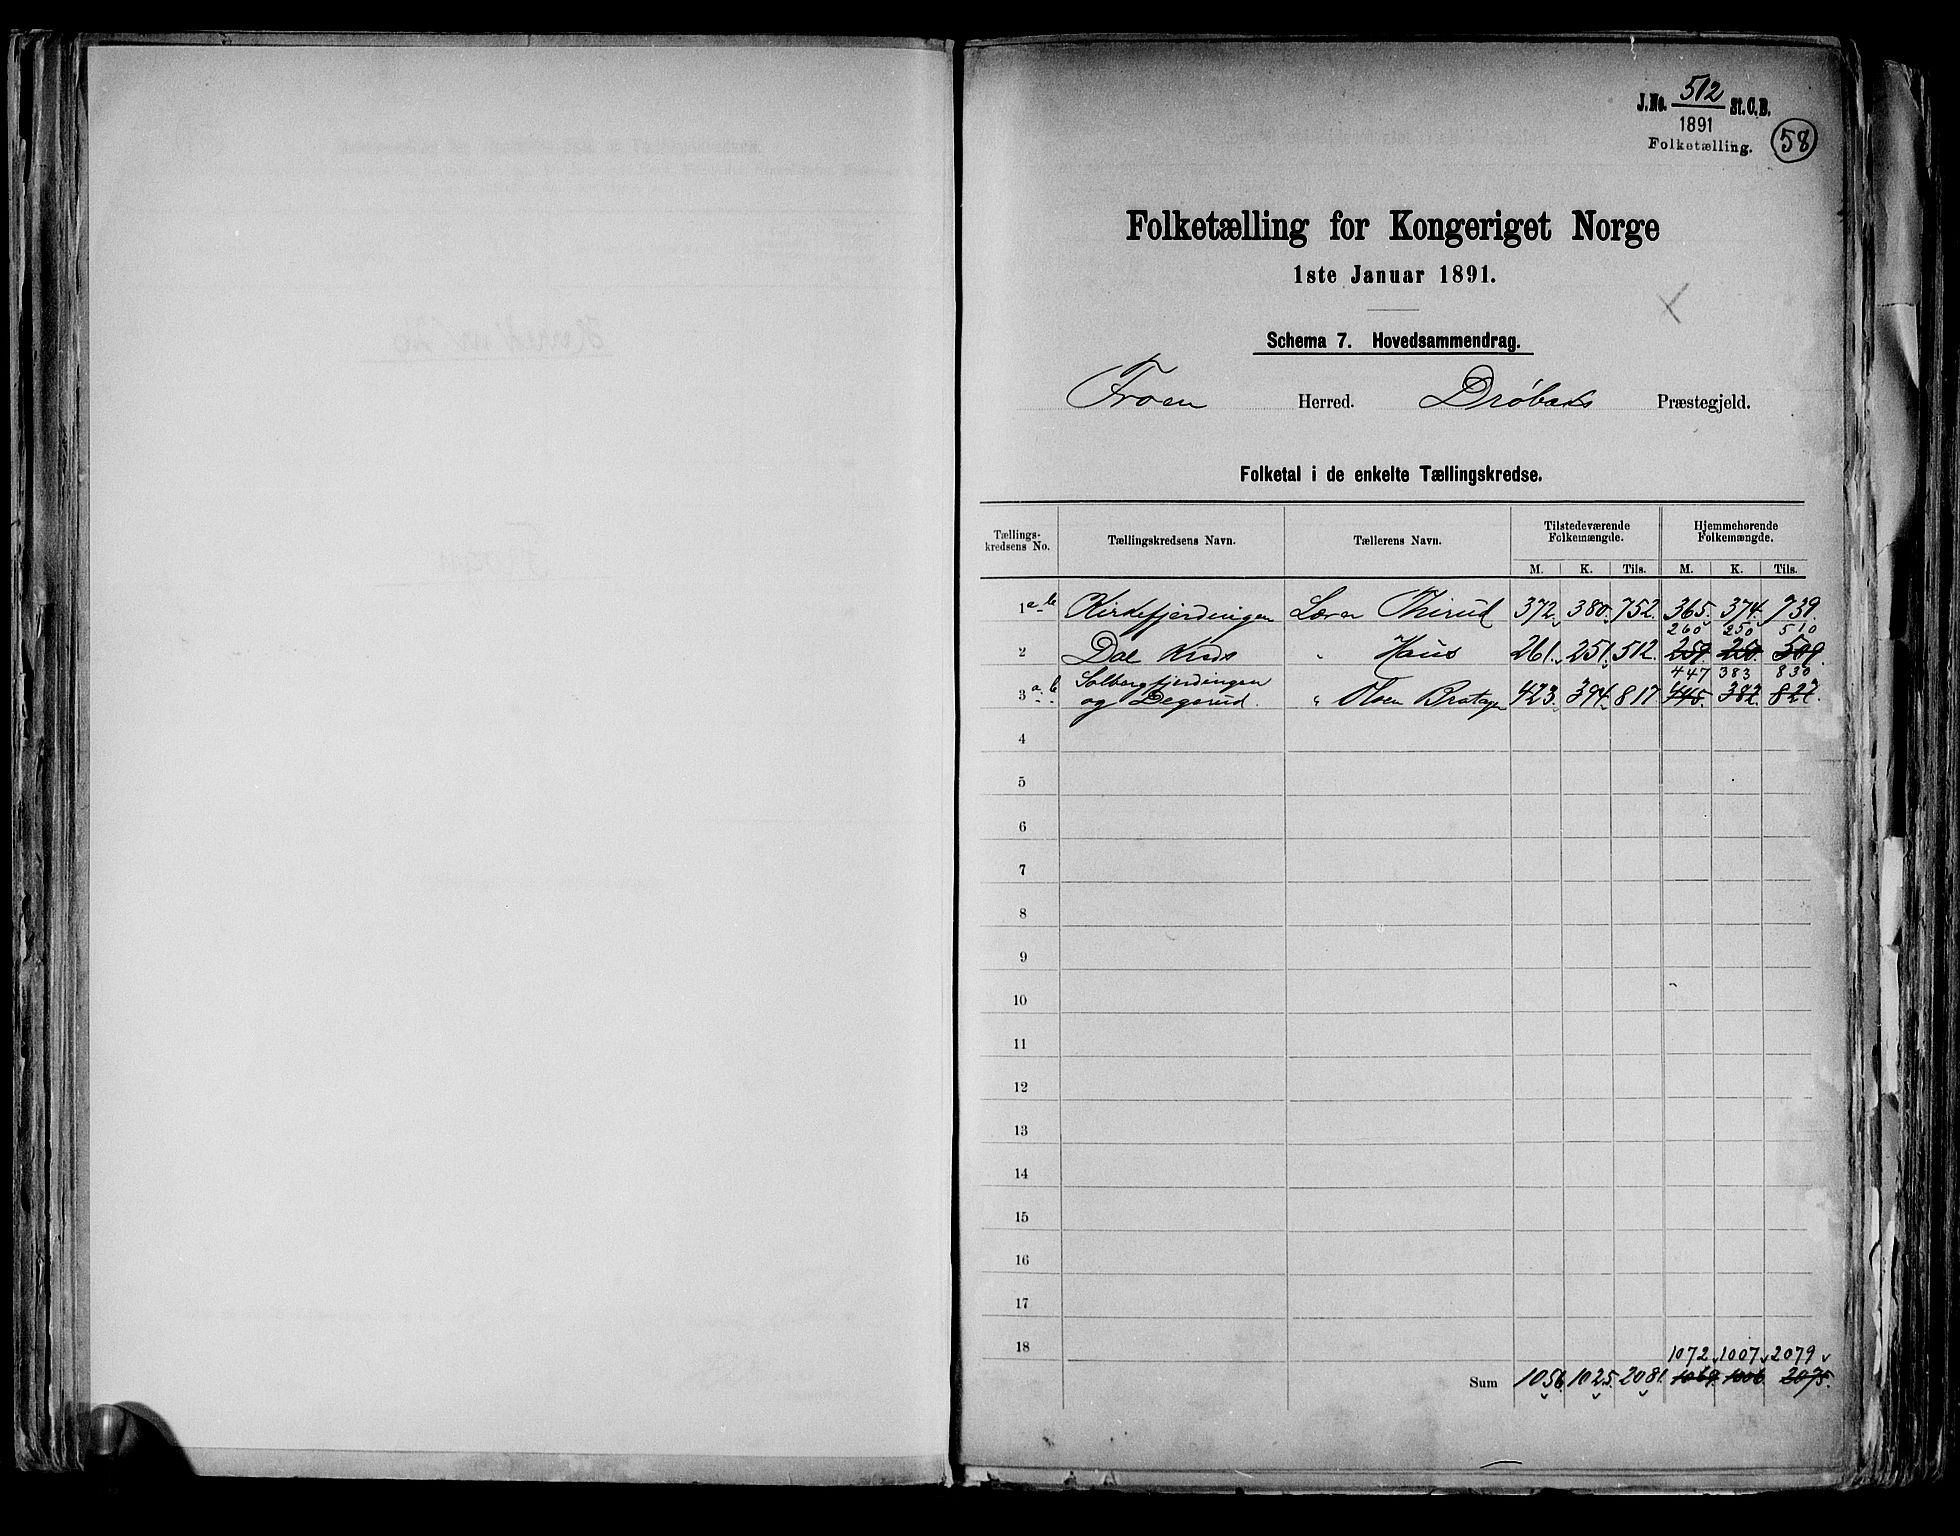 J.No. 512 St.C.B.
1891
Folketælling. 58
Folketælling for Kongeriget Norge
1ste Januar 1891.
Schema 7. Hovedsammendrag.
Froen Herred. Drøbaks Præstegjeld.
Folketal i de enkelte Tællingskredse.
Tællings-kredsens No. Tællingskredsens Navn. Tællerens Navn. Tilstedeværende Folkemængde. Hjemmehørende Folkemængde.
M. K. Tils. M. K. Tils.
1 a-b Kirkefjerdingen Lærer Thirud 372. 380. 752. 365. 374. 739.
260 250 510
2 Dal Kreds " Haus 261. 251. 512. 259. 250. 509.
447 383 830
3 a-b Solbergfjerdingen
og Degerud. " Olsen Bratager 423. 394. 817 445. 382. 827.
4
5
6
7
8
9
10
11
12
13
14
15
16
17
18
1072 1007 2079
Sum 1056. 1025. 2081. 1069. 1006. 2075.